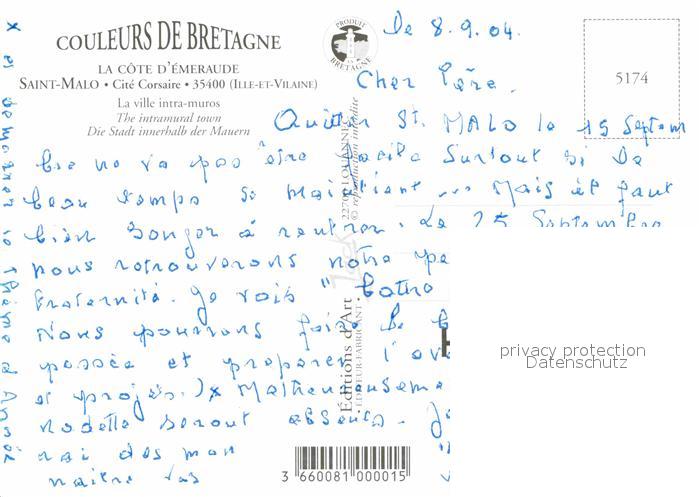 COULEURS DE BRETAGNE
LA CÔTE D'ÉMERAUDE
SAINT-MALO • Cité Corsaire • 35400 (ILLE-ET-VILAINE)
La ville intra-muros
The intramural town
Die Stadt innerhalb der Mauern
PRODUIT EN BRETAGNE
Le 8.9.04.
5174
Cher Père.
Quitter St. MALO le 15 Septem
bre ne va pas être facile surtout si le
beau temps se maintient ... Mais il faut
bien songer à rentrer. Le 25 Septembre
nous retrouverons notre pe
Fraternité. Je vois "
Nous pourrons faire le b
passée et préparer l'ave
et projets. Malheureuseme
seront absents. Je
rai des mon
naître vos
x et de
Editions d'Art Jack
• EDITEUR FABRICANT •
22700 LOUANNEC
© reproduction interdite
3 660081 000015
privacy protection
Datenschutz